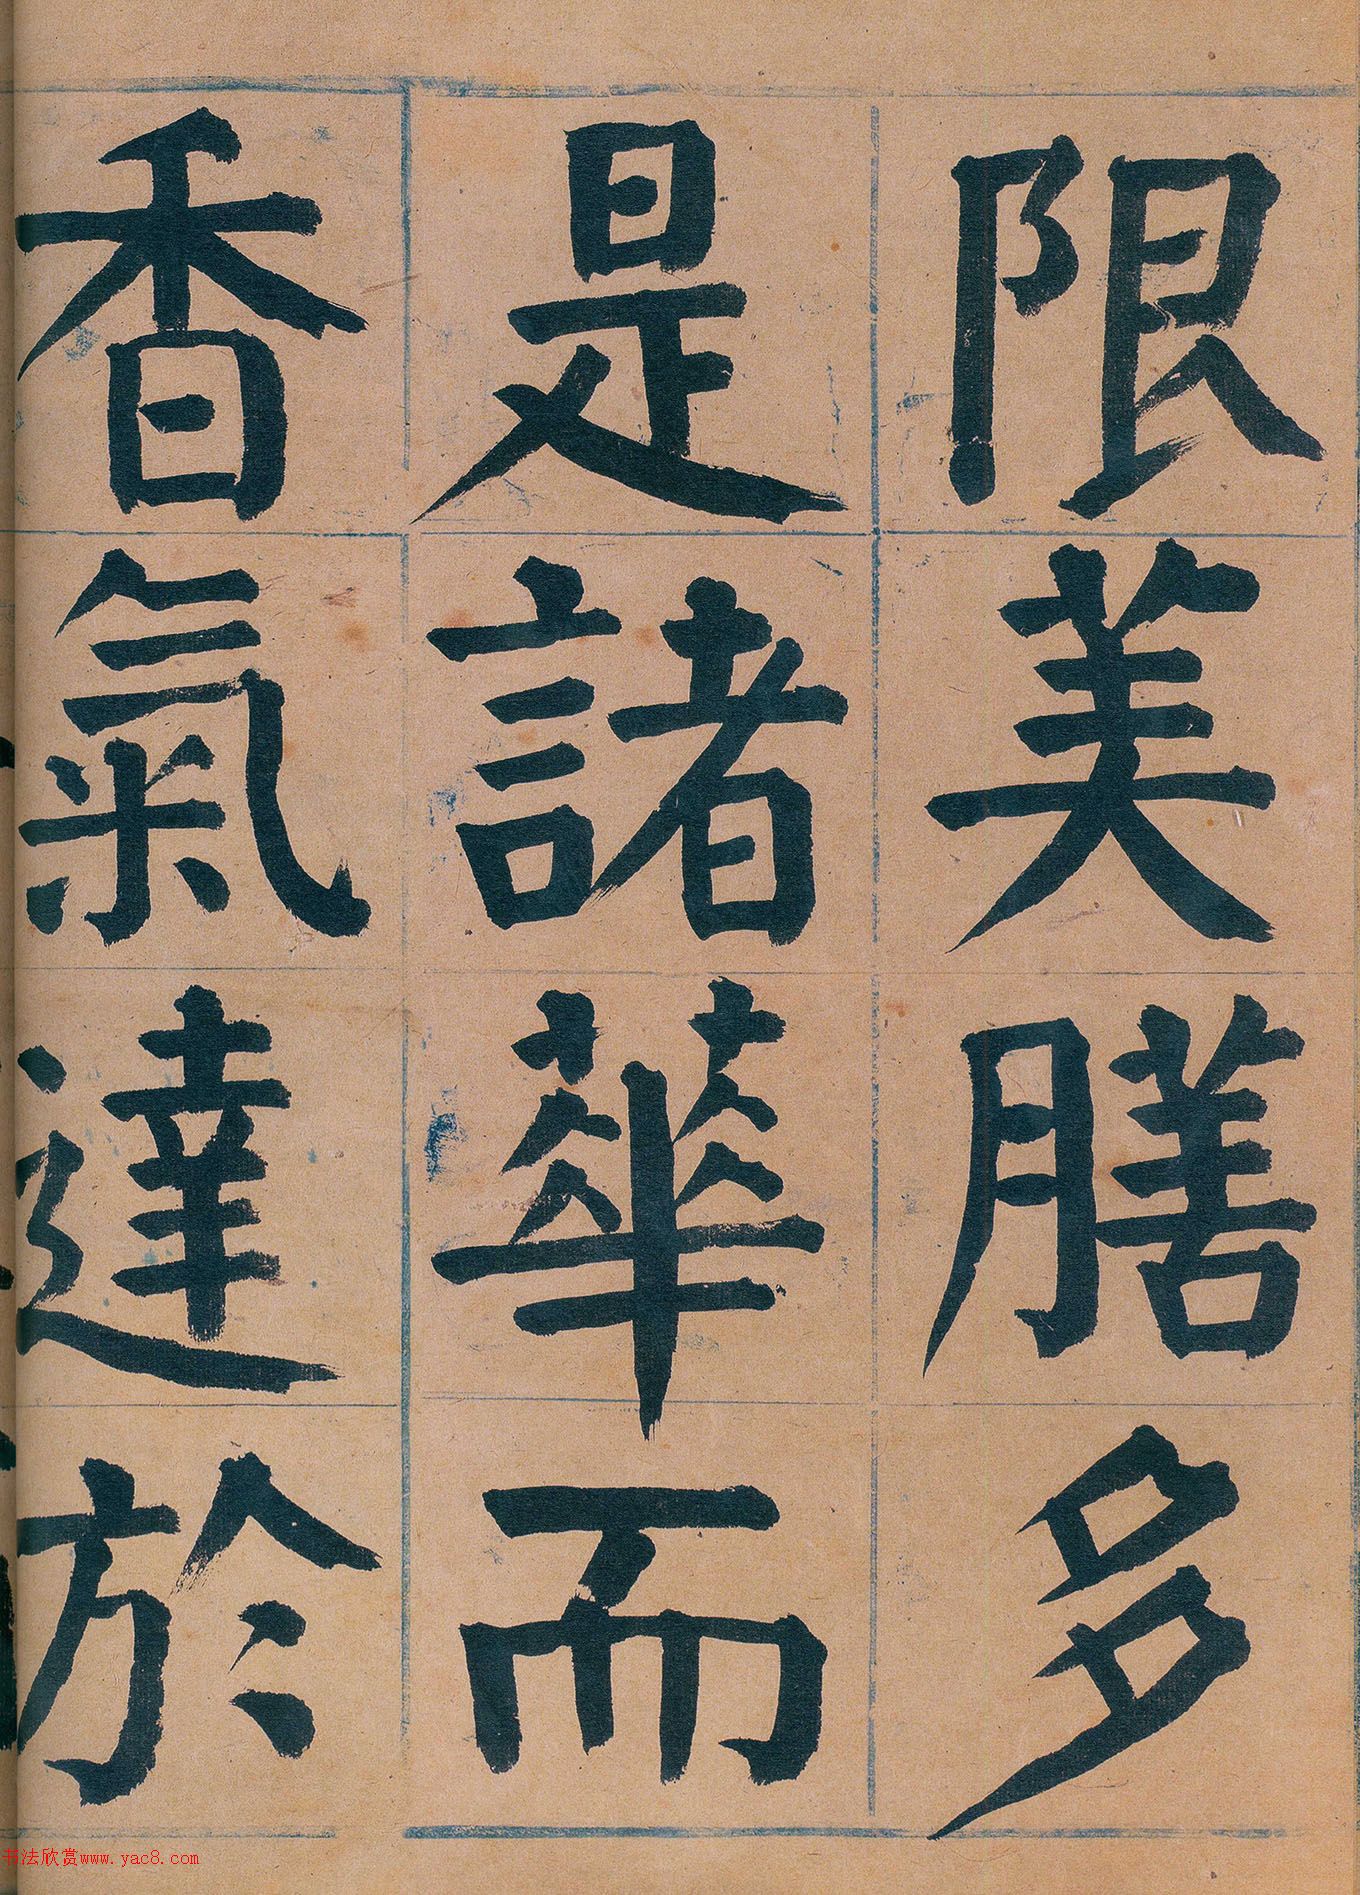 限美膳多
是諸華而
香氣達於
书法欣赏www.yac8.com